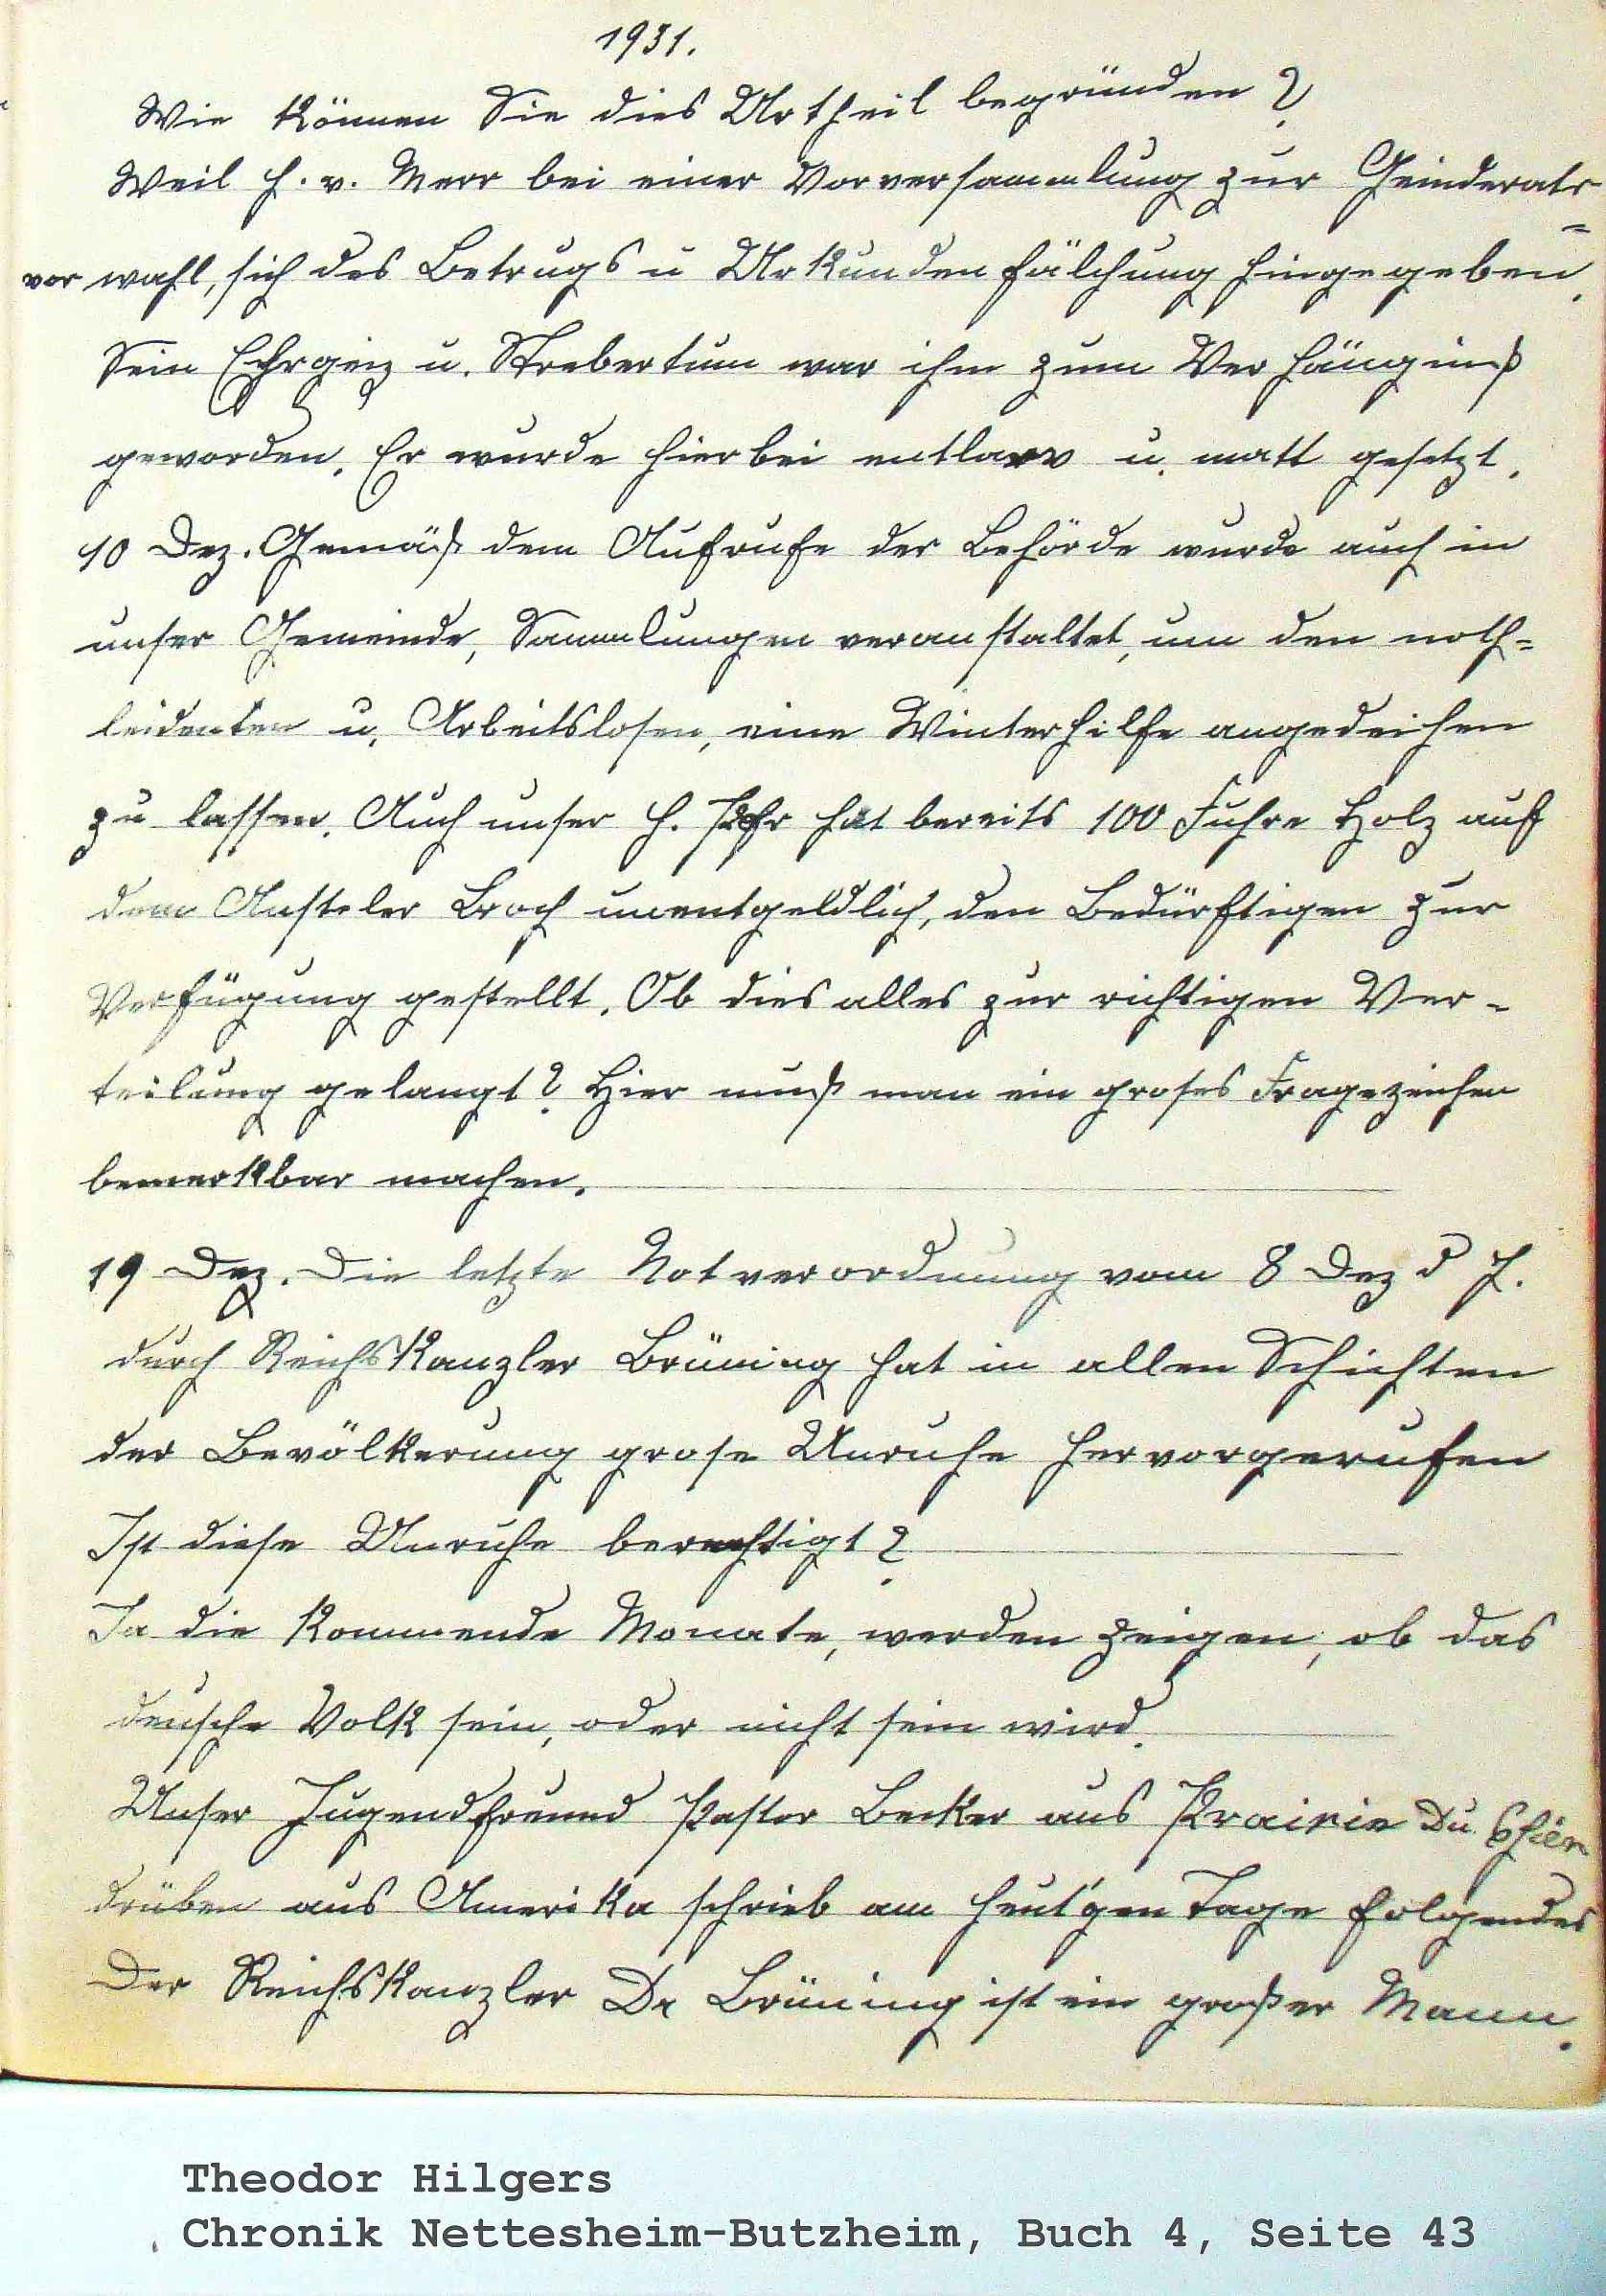 1931.
Wie können Sie dies Urtheil begründen?
Weil H. v. Meer bei einer Vorversammlung zur Geinderats-
vor wahl, sich des Betrugs u Urkundenfälchung hingegeben.
Sein Ehrgeiz u. Strebertum war ihm zum Verhängniß
geworden. Er wurde hierbei entlarv u. matt gesetzt.
10 Dez. Gemäß dem Aufrufe der Behörde wurde auch in
unser Gemeinde, Sammlungen veranstaltet, um den noth-
leidenten u. Arbeitslosen, eine Winterhilfe angedeihen
zu lassen. Auch unser H. hat bereits 100 Fuhre Holz auf
dem Ansteler Broch unentgeldlich, den Bedürftigen zur
Verfügung gestellt. Ob dies alles zur richtigen Ver-
teilung gelangt? Hier muß man ein groses Fragezeichen
bemerkbar machen.
19 Dez. Die letzte Notverordnung vom 8 Dez d J.
durch Reichskanzler Brüning hat in allen Schichten
der Bevölkerung grose Unruhe hervorgerufen
Ist diese Unruhe berechtigt?
Ja die kommende Monate, werden zeigen, ob das
deusche Volk sein, oder nicht sein wird.
Unser Jugendfreund Pastor Becker aus Prairie Du Chien
drüben aus Amerika schrieb am heut'gen Tage folgendes
Der Reichskanzler Dr Brüning ist ein großer Mann.
Theodor Hilgers
Chronik Nettesheim-Butzheim, Buch 4, Seite 43